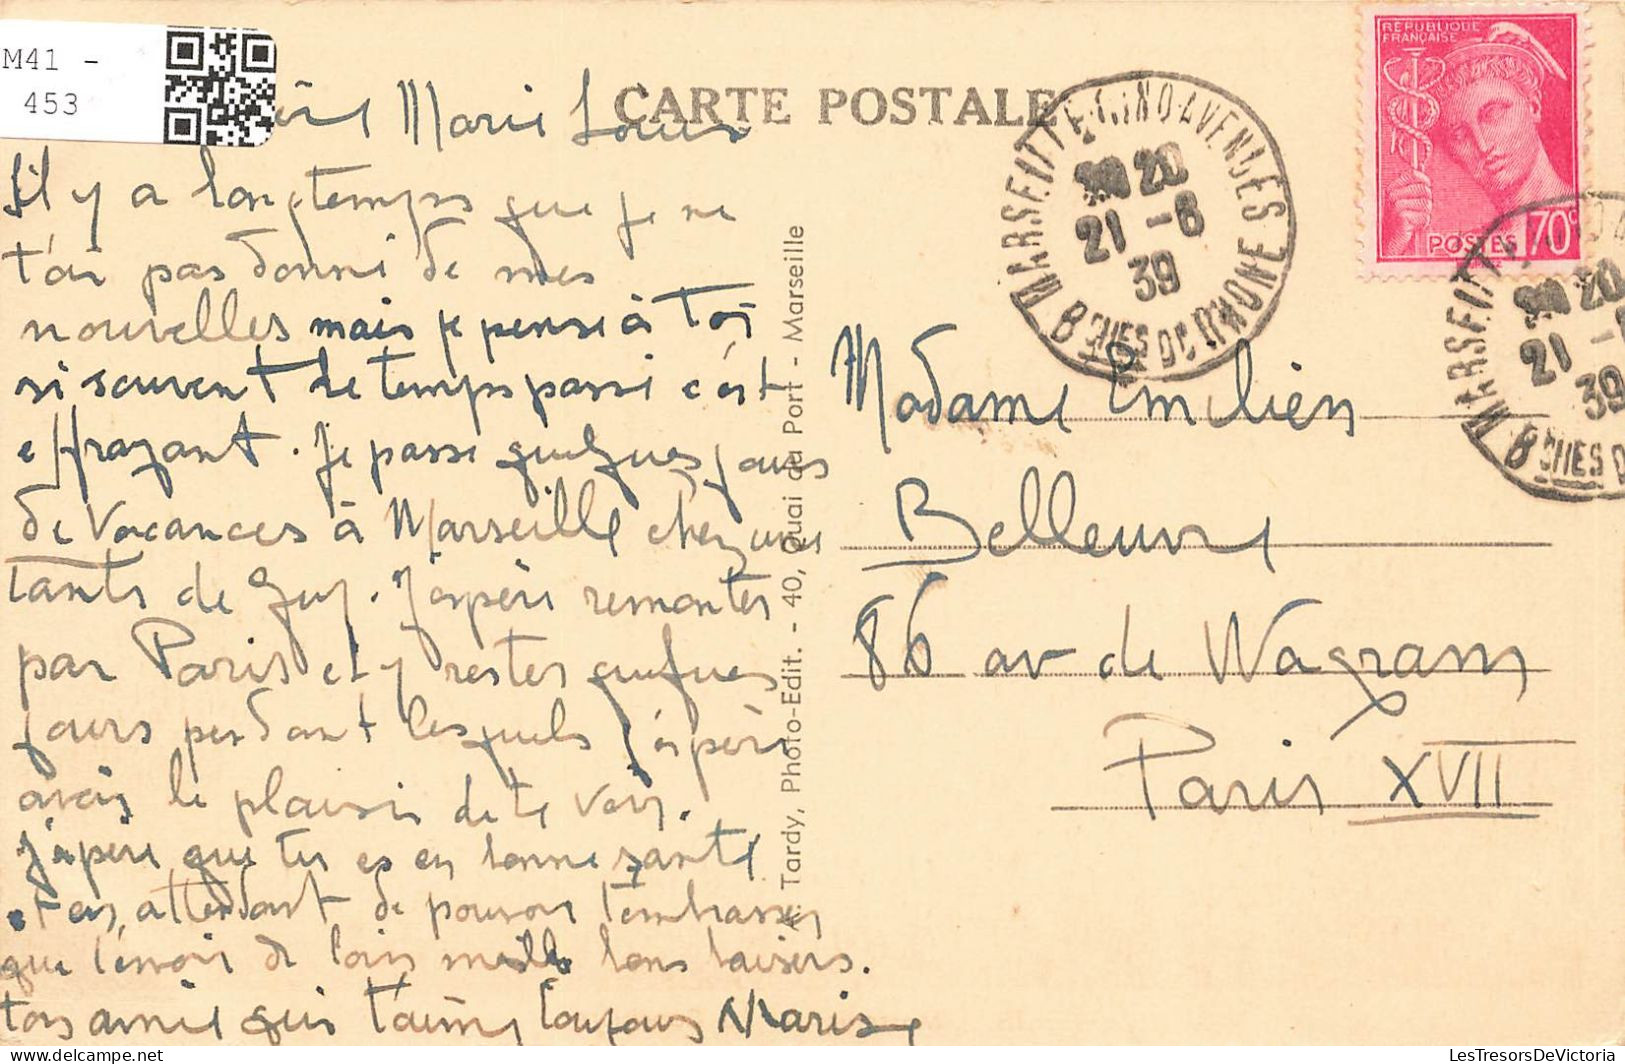 M41 -
453
CARTE POSTALE
Marie Louise
Il y a longtemps que je ne
t'ai pas donné de mes
nouvelles mais je pense à toi
si souvent le temps passe c'est
effrayant. Je passe quelques jours
de vacances à Marseille chez une
tante de Guy. J'espère remonter
par Paris et y rester quelques
jours pendant lesquels j'espère
avoir le plaisir de te voir.
J'espère que tu es en bonne santé
et en attendant de pouvoir t'embrasser
que t'envoie de loin mille bons baisers.
ton amie qui t'aime toujours Marise
A. Tardy, Photo-Edit. - 40, Quai du Port - Marseille
REPUBLIQUE
FRANÇAISE
POSTES 70c
MARSEILLE CINQ AVENUES
20
21 - 6
39
BCHES DU RHONE
MARSEILLE
20
21 -
39
BCHES D
Madame Emilien
Belleuvre
86 av de Wagram
Paris XVII
LesTresorsDeVictoria